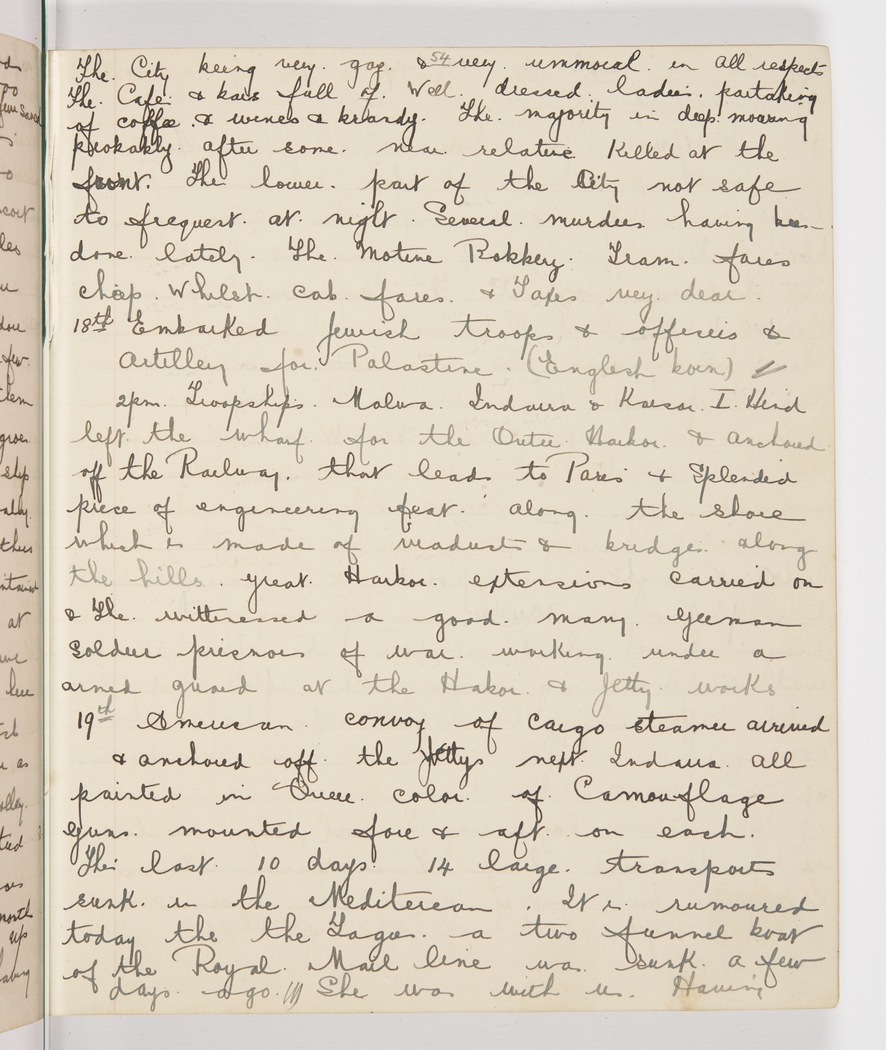 54
The. City being very. gay. & very. ummoral. in all respects
The. Cafe. & bars full of. Well. dressed. ladies. partaking
of coffee. & wines & brandy. The. majority in deep. mourning
probably. after some. near relative Killed at the
front. The lower. part of the City not safe
to frequent. at. night. Several. murders having been
done. lately. The. Motine Robbery. Tram. fares
cheap. Whilst. cab. fares. & Taxes very. dear.
18th Embarked Jewish troops & officers &
Artillery for. Palastine. (English born)
2pm. Troopships. Malwa. Indarra & Kaisar. I. Hind
left. the wharf. for the Outer Harbor. & anchored
off the Railway. that leads to Paris & Splended
piece of engineering feat. along. the shore
which is made of viaducts & bridges along
the hills. great. Harbor. extensions carried on
& The. wittnessed a good. many. German
Soldier prisnors of war. working. under a
armed guard at the Habor. & Jetty. works
19th American. convoy of cargo steamer arrived
& anchored off. the Jettys next. Indarra. all
painted in Queer. color. of. Camouflage
guns. mounted fore & aft. on each.
The last. 10 days. 14 large. transports
sunk. in the Mediterean. It is. rumoured
today the the Lagos. a two funnel boat
of the Royal. Mail line was. sunk. a few
days. ago. She was with us. Having